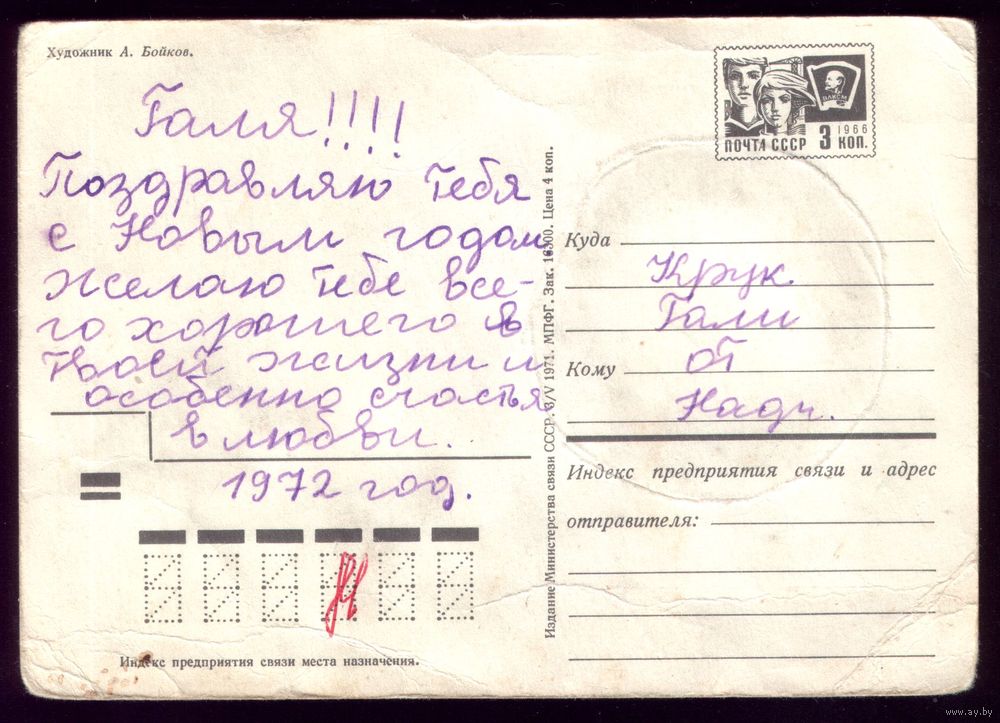 Художник А. Бойков.
Галя!!!!
Поздравляю тебя
с Новым годом
желаю тебе все-
го хорошего в
твоей жизни и
особенно счастья
в любви.
1972 год.
Индекс предприятия связи места назначения.
Издание Министерства связи СССР. 3/V 1971. МПФГ. Зак. 16300. Цена 4 коп.
ВЛКСМ
1966
ПОЧТА СССР 3 КОП.
Куда
Крук
Гали
Кому от
Нади.
Индекс предприятия связи и адрес
отправителя:
www.ay.by